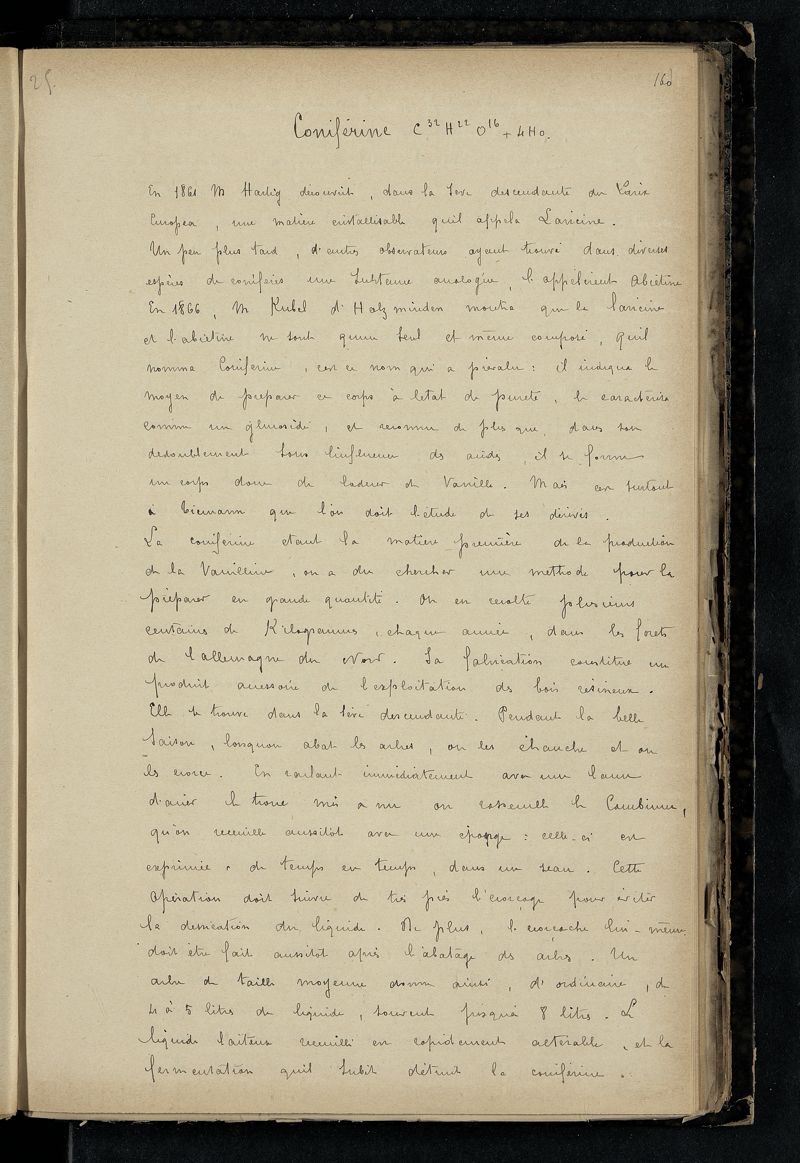 25.
160
Coniférine C³²H²²O¹⁶ + 4HO.
En 1861 M Hartig découvrit, dans la sève descendante du Larix
Europea, une matière cristallisable qu'il appela Laricine.
Un peu plus tard, d'autres observateurs ayant trouvé dans diverses
espèces de conifères une substance analogue, l'appelèrent Abiétine
En 1866, M Kubel d'Holzminden montra que la laricine
et l'abiétine ne sont qu'un seul et même composé, qu'il
nomma Coniférine, c'est ce nom qui a prévalu : il indiqua le
moyen de préparer ce corps à l'état de pureté, le caractérisa
comme un glucoside, et reconnu de plus que, dans son
dédoublement sous l'influence des acides, il se forme
un corps doué de l'odeur de Vanille. Mais c'est surtout
à Tiemann que l'on doit l'étude de ses dérivés.
La coniférine étant la matière première de la production
de la Vanilline, on a du chercher une méthode pour la
préparer en grande quantité. On en récolte plusieurs
centaines de Kilogrammes, chaque année, dans les forets
de l'allemagne du Nord. Sa fabrication constitue un
produit accessoire de l'exploitation des bois résineux.
Elle se trouve dans la sève descendante. Pendant la belle
saison, lorsqu'on abat les arbres, on les ébranche et on
les écorce. En raclant immédiatement avec une lame
d'acier le tronc mis à nu on rassemble le Cambium,
qu'on recueille aussitôt avec une éponge : celle-ci est
exprimée, de temps en temps, dans un seau. Cette
opération doit suivre de très près l'écorçage pour éviter
la dessication du liquide. De plus, l'écorçache lui-même
doit être fait aussitôt après l'abatage des arbres. Un
arbre de taille moyenne donne ainsi, d'ordinaire, de
4 à 5 litres de liquide, souvent jusqu'à 8 litres. Le
liquide laiteux recueilli est rapidement altérable, et la
fermentation qu'il subit détruit la coniférine.